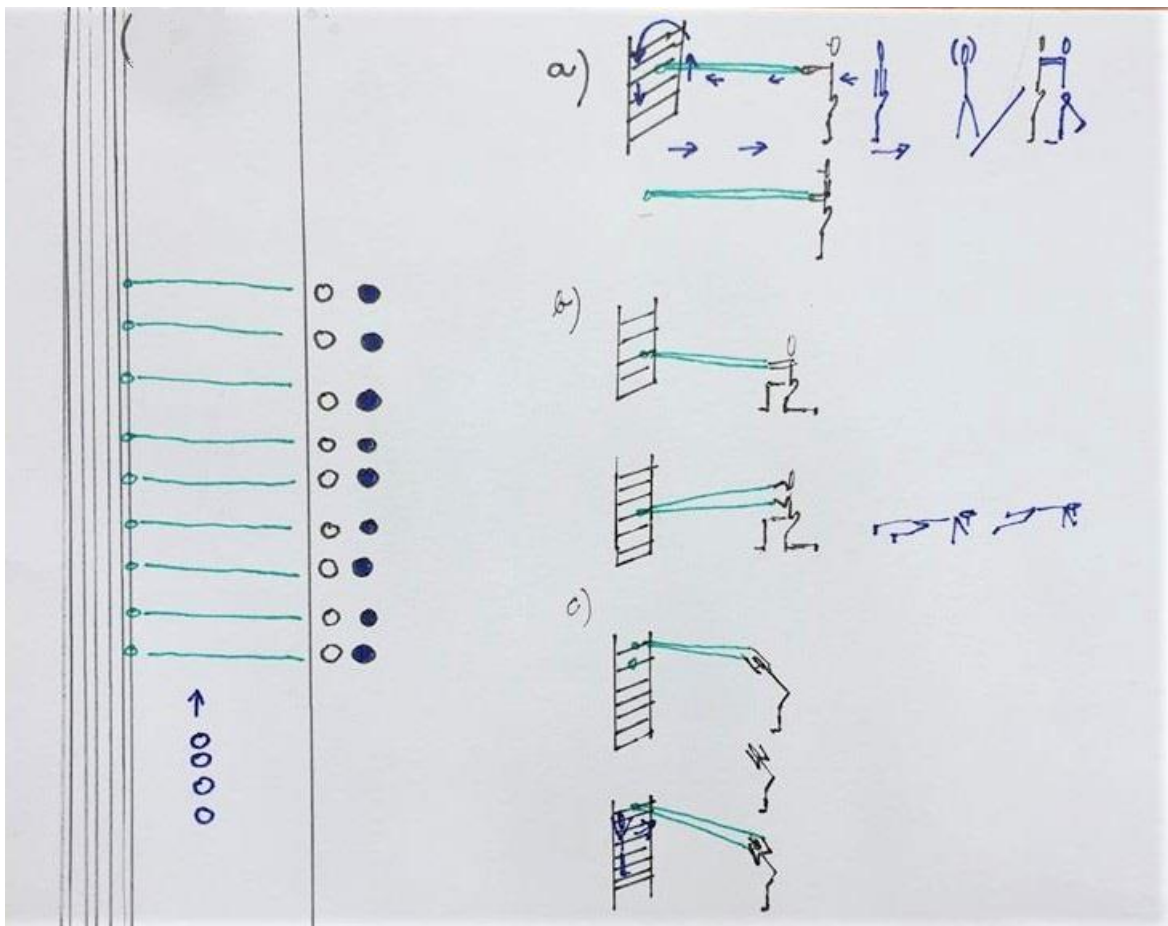 a)
b)
c)